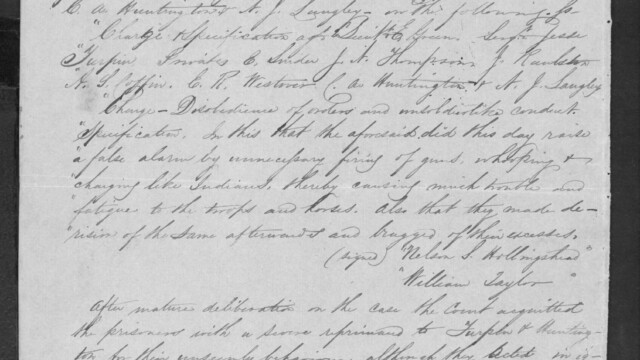 C. A. Huntington & A. J. Langley - on the following
"Charge & Specification
Turpin Privates E. Snider J. A. Thompson J.
A. S. Coffin. C. R. Westover C. A. Huntington & A. J. Langley
"Charge - Disobedience of orders and unsoldierlike conduct.
"Specification. In this that the aforesaid did this day raise
"a false alarm by unnecessary firing of guns, whooping &
charging like Indians, thereby causing much trouble and
"fatigue to the troops and horses. Also that they made de-
"rision of the same afterwards and bragged of their excesses.
(signed) Nelson S. Hollingshead"
"William Taylor"
After mature deliberation on the case the Court acquitted
the prisoners with a severe reprimand to Turpin & Hunting-
ton for their unseemly behaviour, although they